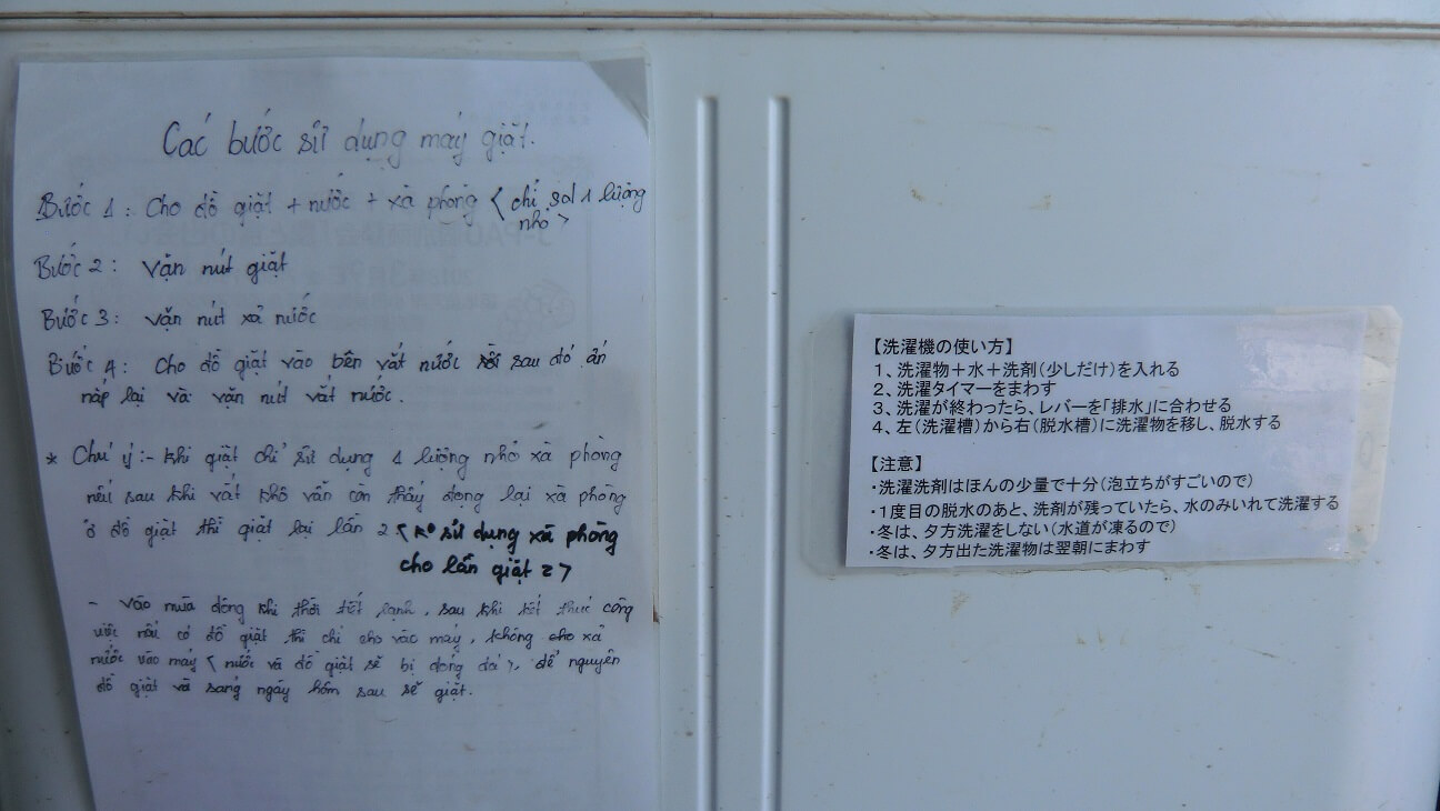 Các bước sử dụng máy giặt.
Bước 1: Cho đồ giặt + nước + xà phòng < chỉ sd 1 lượng
nhỏ >
Bước 2: Vặn nút giặt
Bước 3: Vặn nút xả nước
Bước 4: Cho đồ giặt vào bên vắt nước rồi sau đó ấn
nắp lại và vặn nút vắt nước.
* Chú ý: - Khi giặt chỉ sử dụng 1 lượng nhỏ xà phòng
nếu sau khi vắt khô vẫn còn thấy đọng lại xà phòng
ở đồ giặt thì giặt lại lần 2 < Ko sử dụng xà phòng
cho lần giặt 2 >
- Vào mùa đông khi thời tiết lạnh, sau khi kết thúc công
việc nếu có đồ giặt thì chỉ cho vào máy, không cho xả
nước vào máy < nước và đồ giặt sẽ bị đóng đá >, để nguyên
đồ giặt và sang ngày hôm sau sẽ giặt.
【洗濯機の使い方】
1、洗濯物＋水＋洗剤(少しだけ)を入れる
2、洗濯タイマーをまわす
3、洗濯が終わったら、レバーを「排水」に合わせる
4、左(洗濯槽)から右(脱水槽)に洗濯物を移し、脱水する
【注意】
・洗濯洗剤はほんの少量で十分(泡立ちがすごいので)
・1度目の脱水のあと、洗剤が残っていたら、水のみいれて洗濯する
・冬は、夕方洗濯をしない(水道が凍るので)
・冬は、夕方出た洗濯物は翌朝にまわす